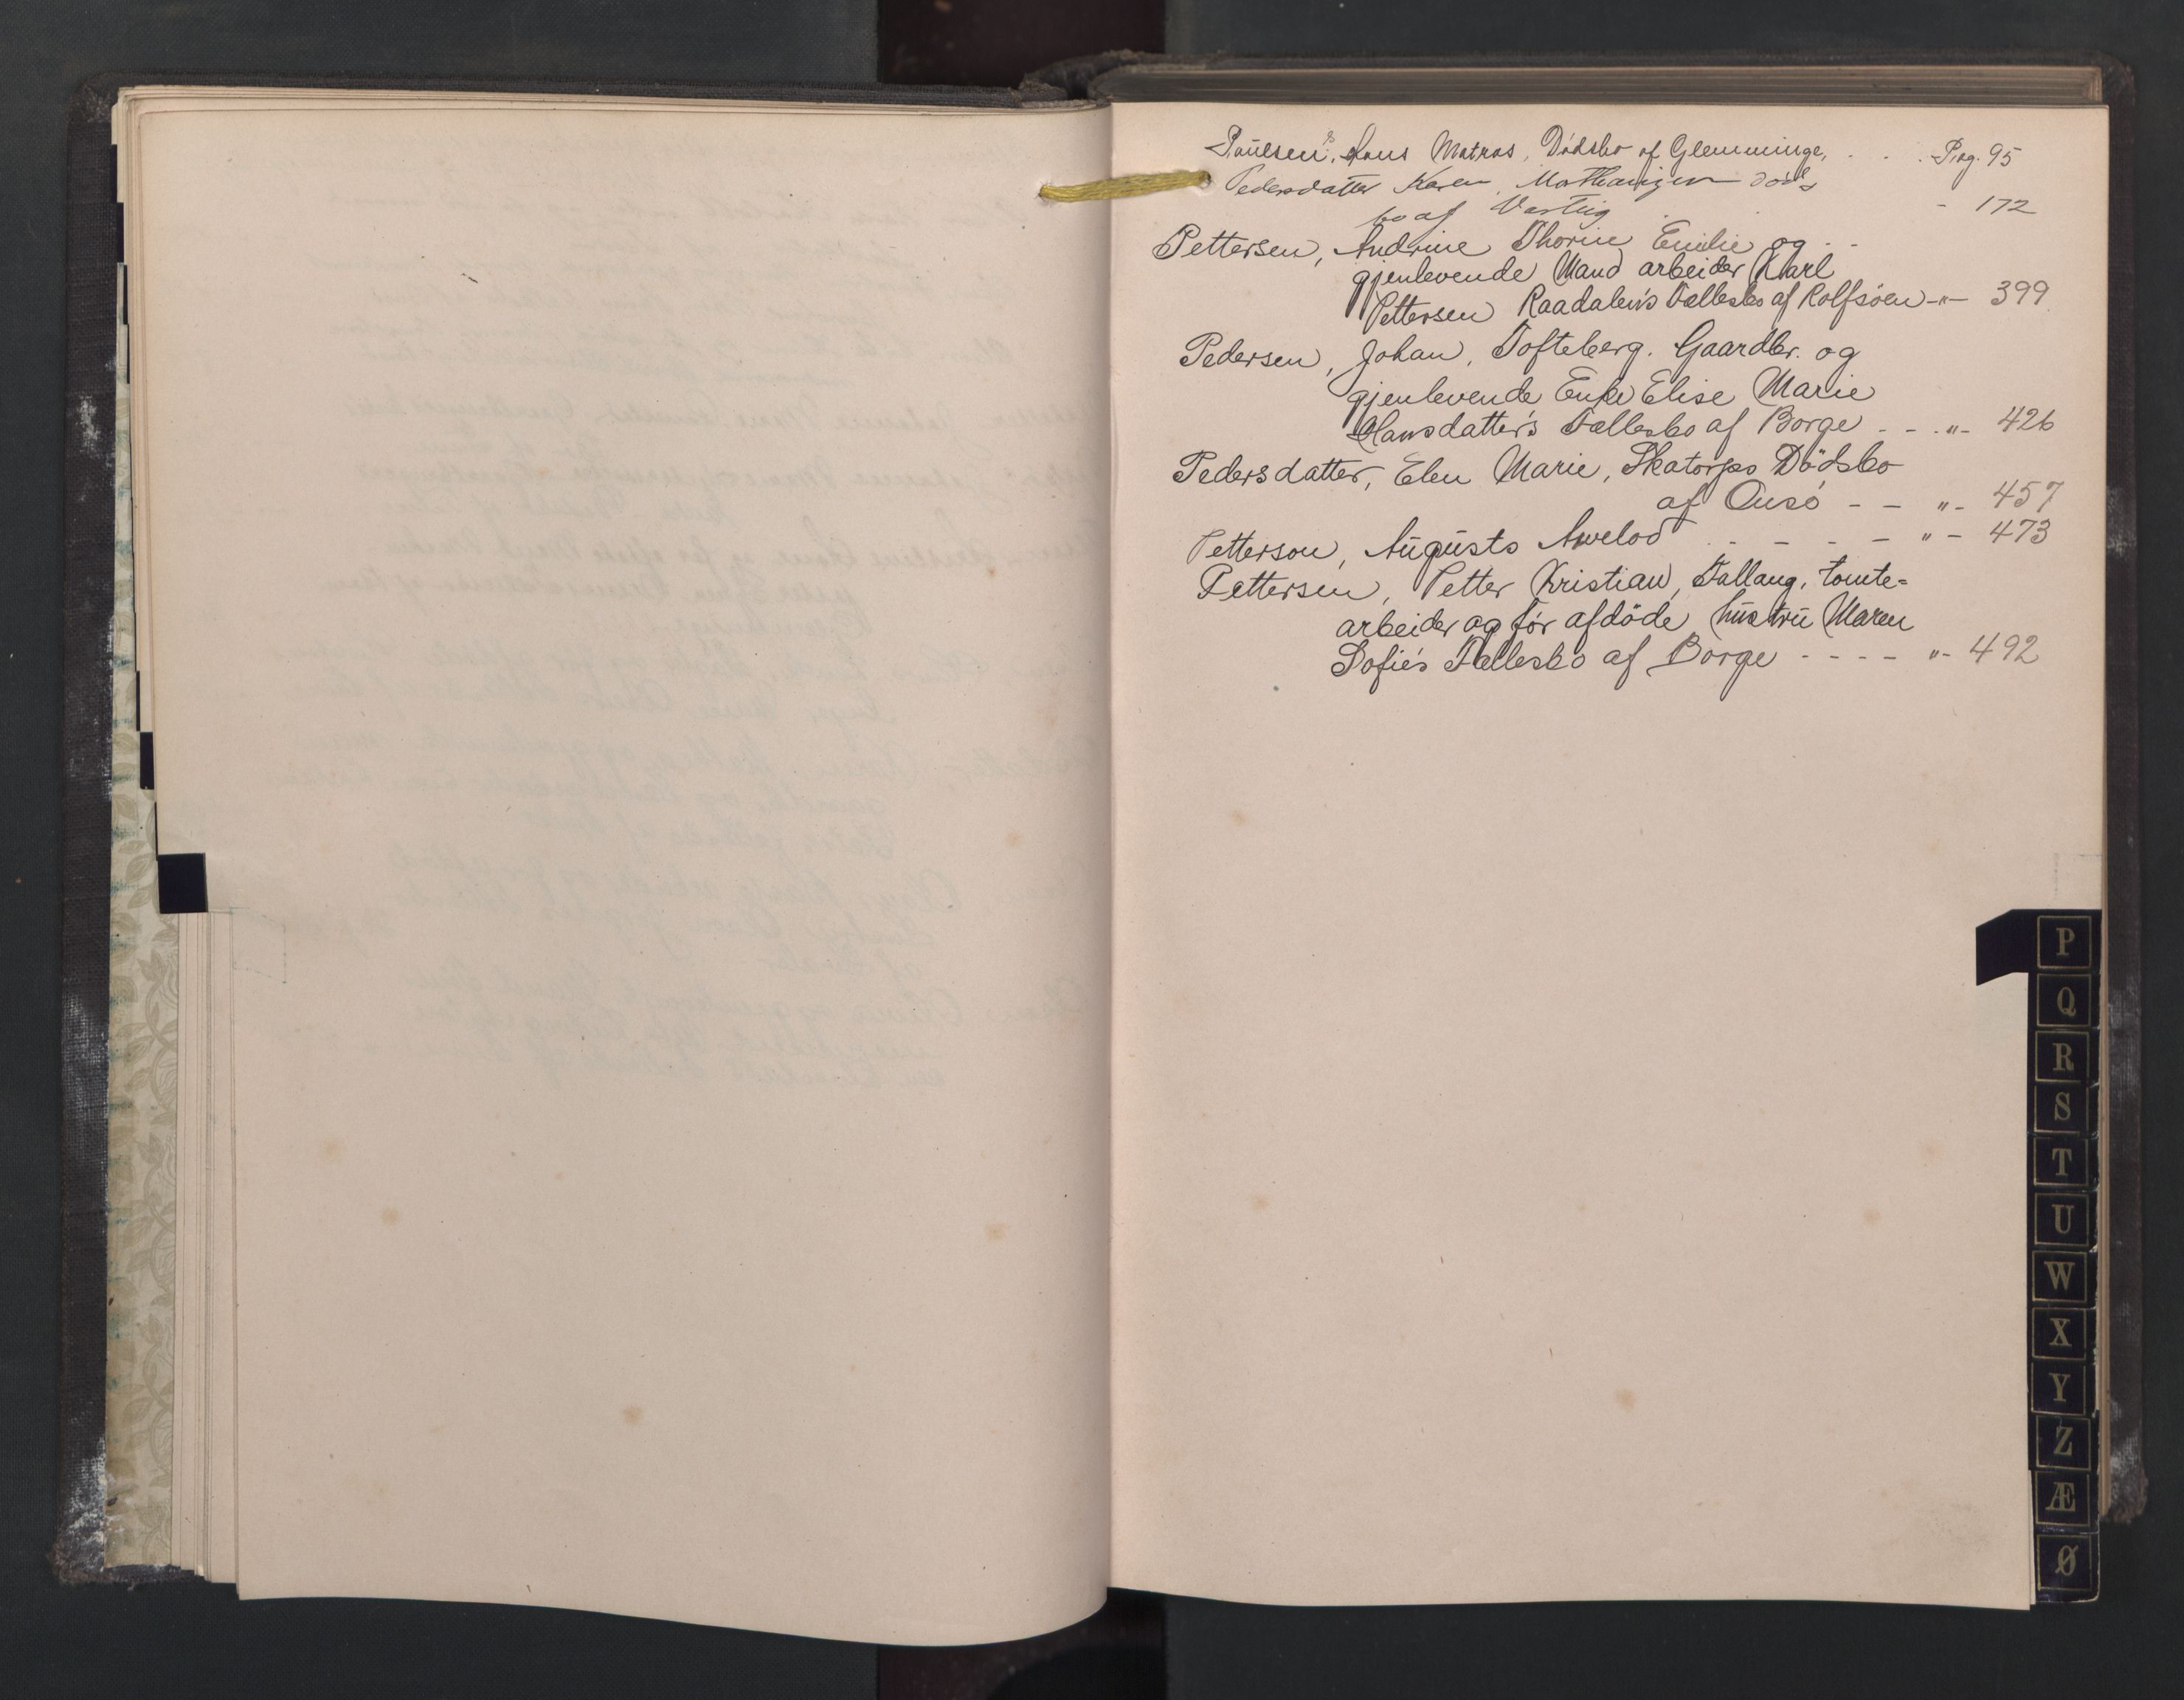 Paulsen, Hans Matros, Dødsbo af Glemminge, . . . Pag. 95
Pedersdatter Karen, døds
bo af - 172
Pettersen, Andrine Thorine Emilie og - -
gjenlevende Mand arbeider Karl
Pettersen Raadalen's Fællesbo af Rolfsöen -"- 399
Pedersen, Johan, Tofteberg. Gaardbr. og
gjenlevende Enke Elise Marie
Hansdatter's Fællesbo af Borge - - -"- 426
Pedersdatter, Elen Marie, Skatorps Dödsbo
af Onsö - - "- 457
Petterson, Augusts - - - - "- 473
Pettersen, Petter Kristian, Tallang, tomte=
arbeider og før afdöde hustru Maren
Sofie's Fællesbo af Borge - - - - "- 492
P
Q
R
S
T
U
W
X
Y
Z
Æ
Ø